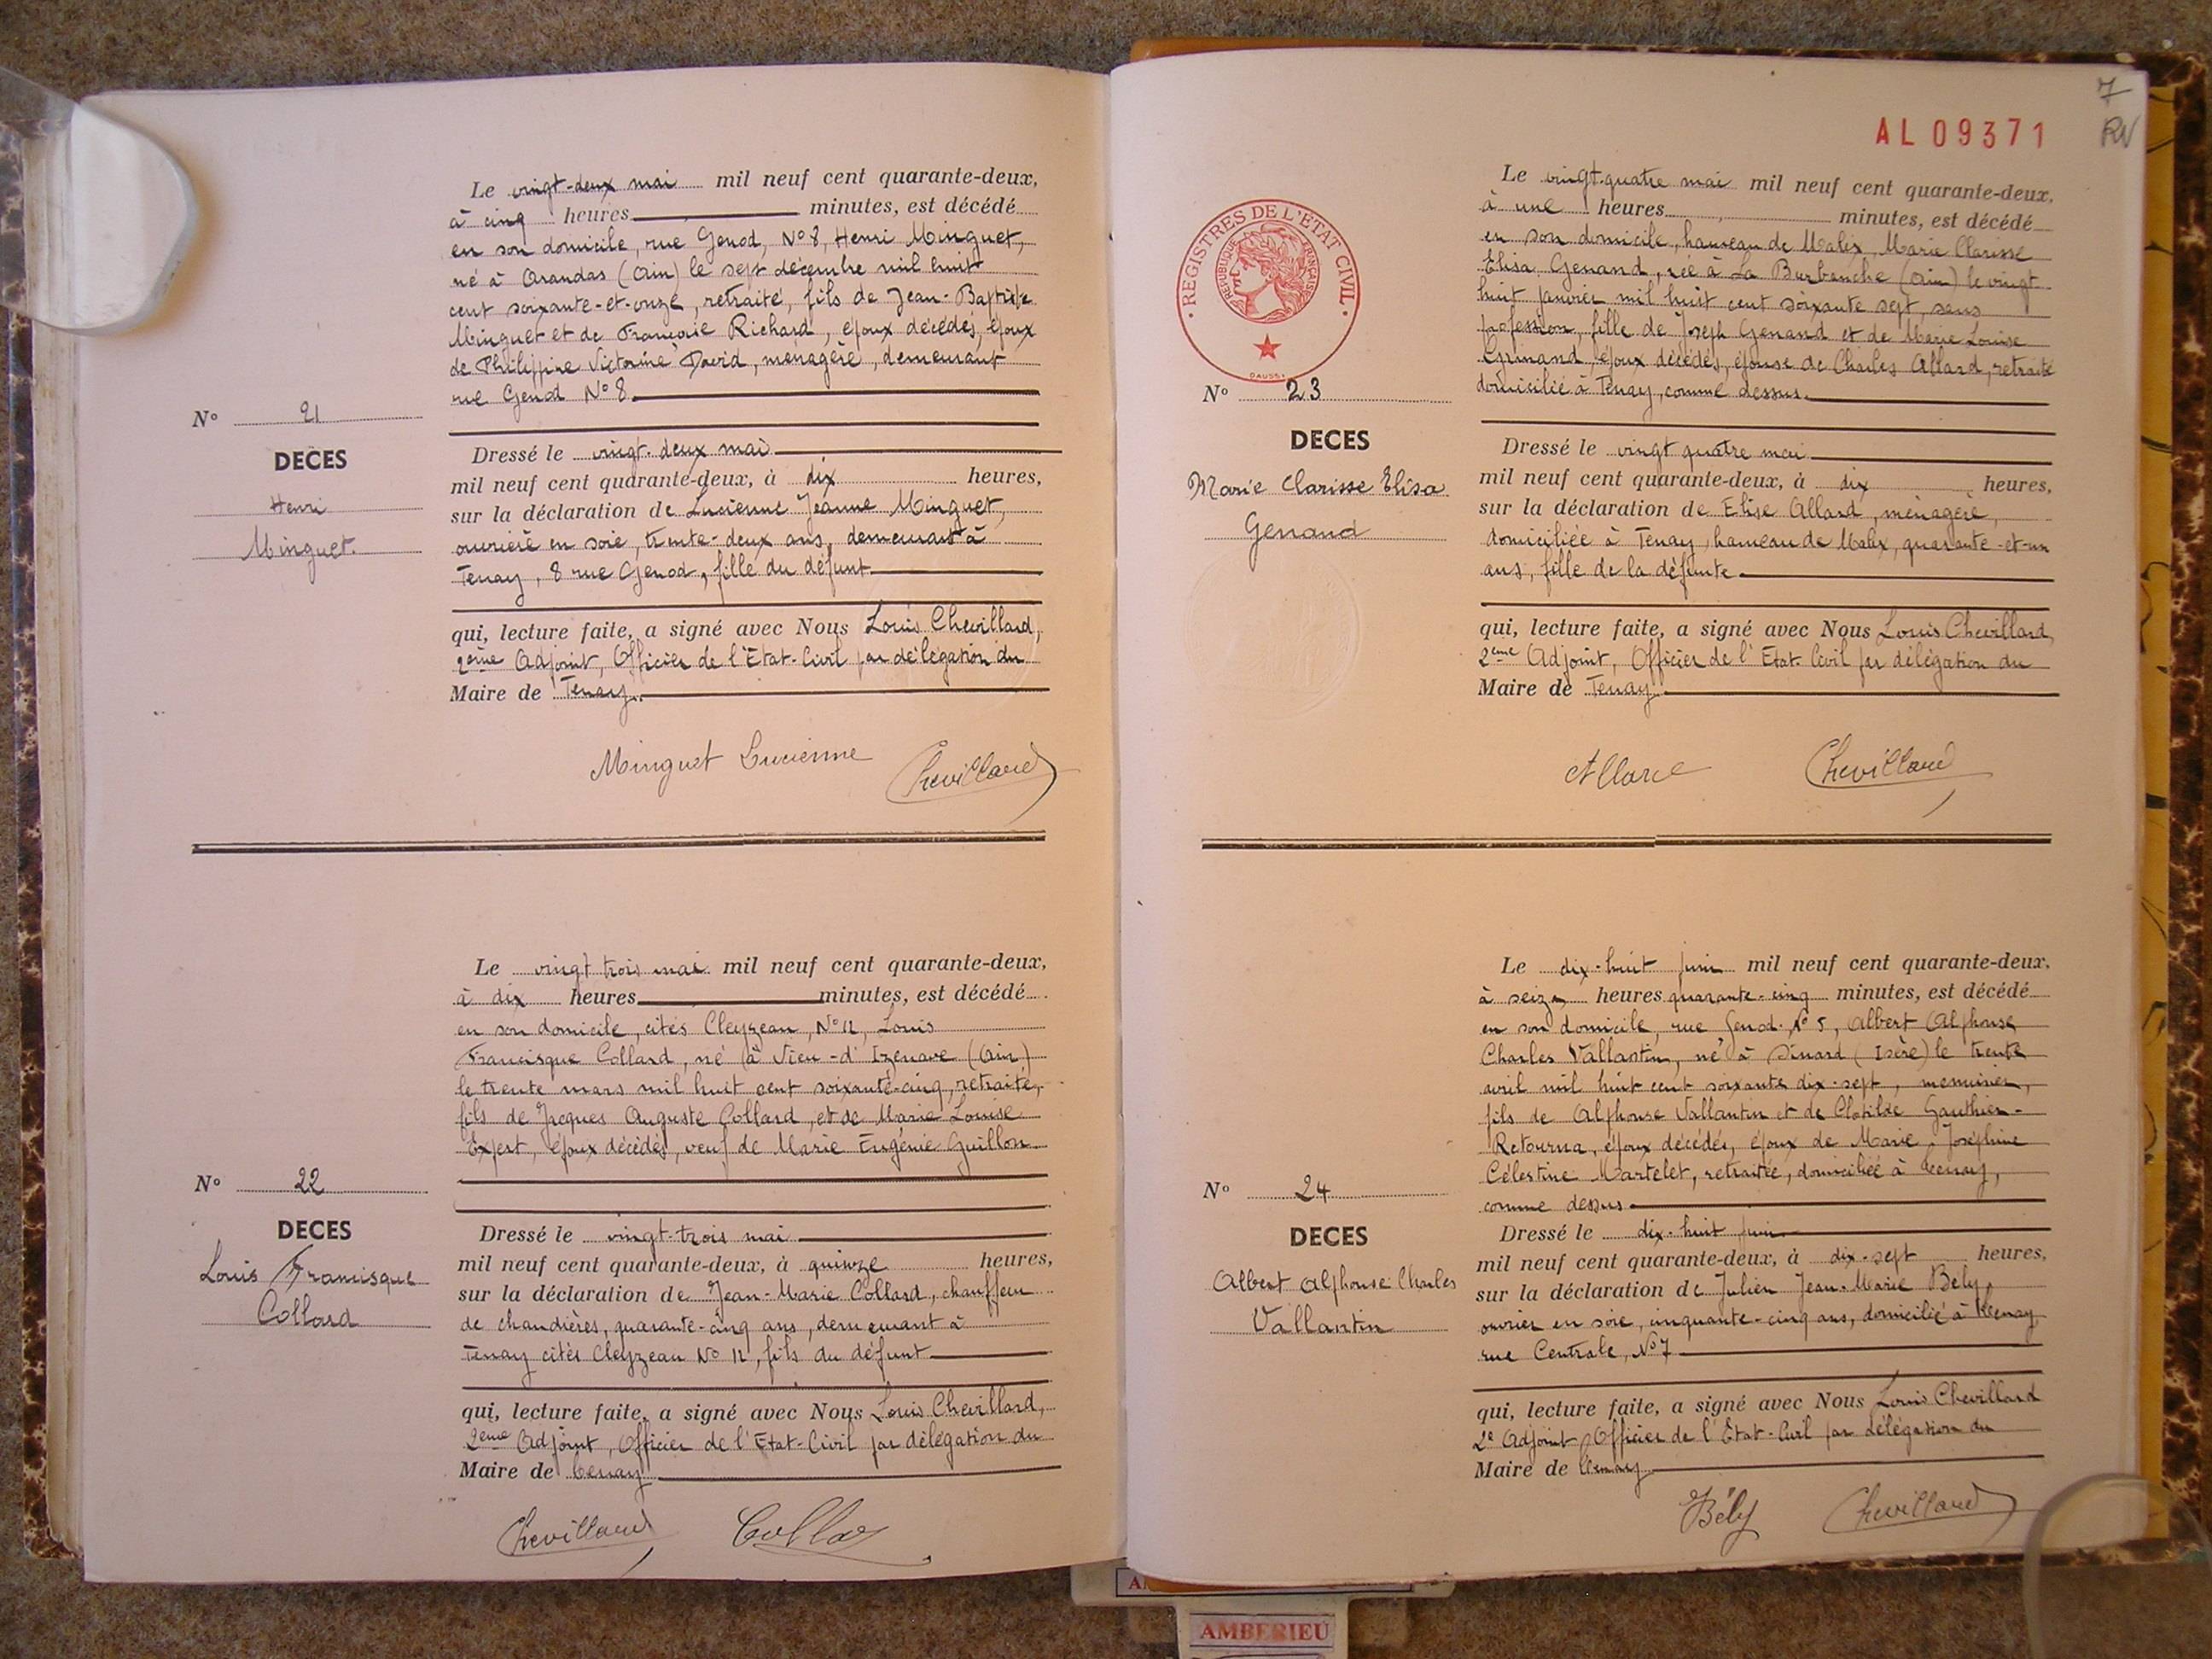 Le vingt-deux mai mil neuf cent quarante-deux,
à cinq heures minutes, est décédé
en son domicile, rue Genod, N° 8, Henri Minguet,
né à Arandas (Ain) le sept décembre mil huit
cent soixante-et-onze, retraité, fils de Jean-Baptiste
Minguet et de Françoise Richard, époux décédés, époux
de Philippine Victorine David, ménagère, demeurant
rue Genod N° 8
N° 21
DECES
Henri
Minguet
Dressé le vingt-deux mai
mil neuf cent quarante-deux, à dix heures,
sur la déclaration de Lucienne Jeanne Minguet,
ouvrière en soie, trente-deux ans, demeurant à
Tenay, 8 rue Genod, fille du défunt
qui, lecture faite, a signé avec Nous Louis Chevillard,
2ème Adjoint, Officier de l'Etat-Civil par délégation du
Maire de Tenay.
Minguet Lucienne Chevillard
Le vingt trois mai mil neuf cent quarante-deux,
à dix heures minutes, est décédé
en son domicile, cités Cleyzeau, N° 12, Louis
Francisque Collard, né à Vieu-d'Izenave (Ain)
le trente mars mil huit cent soixante-cinq, retraité,
fils de Jacques Auguste Collard, et de Marie Louise
Expert, époux décédés, veuf de Marie Eugénie Guillon
N° 22
DECES
Louis Francisque
Collard
Dressé le vingt-trois mai
mil neuf cent quarante-deux, à quinze heures,
sur la déclaration de Jean-Marie Collard, chauffeur
de chaudières, quarante-cinq ans, demeurant à
Tenay cités Cleyzeau N° 12, fils du défunt
qui, lecture faite, a signé avec Nous Louis Chevillard,
2ème Adjoint, Officier de l'Etat-Civil par délégation du
Maire de Tenay
Chevillard Collard
7
RV
AL 09371
REGISTRES DE L'ETAT CIVIL
REPUBLIQUE FRANÇAISE
Le vingt-quatre mai mil neuf cent quarante-deux,
à une heures minutes, est décédé
en son domicile, hameau de Malix, Marie Clarisse
Elisa Genand, née à La Burbanche (Ain) le vingt
huit janvier mil huit cent soixante sept, sans
profession, fille de Joseph Genand et de Marie Louise
époux décédés, épouse de Charles Allard, retraité
domicilié à Tenay, comme dessus.
N° 23
DECES
Marie Clarisse Elisa
Genand
Dressé le vingt quatre mai
mil neuf cent quarante-deux, à dix heures,
sur la déclaration de Elise Allard, ménagère,
domiciliée à Tenay, hameau de Malix, quarante-et-un
ans, fille de la défunte.
qui, lecture faite, a signé avec Nous Louis Chevillard,
2ème Adjoint, Officier de l'Etat-Civil par délégation du
Maire de Tenay
Allard Chevillard
Le dix-huit juin mil neuf cent quarante-deux,
à seize heures quarante-cinq minutes, est décédé
en son domicile, rue Genod N° 5, Albert Alphonse
Charles Vallantin, né à Sinard (Isère) le trente
avril mil huit cent soixante dix-sept, menuisier,
fils de Alphonse Vallantin et de Clotilde Gauthier-
Retourna, époux décédés, époux de Marie Joséphine
Célestine Martelet, retraitée, domiciliée à Tenay,
comme dessus
N° 24
DECES
Albert Alphonse Charles
Vallantin
Dressé le dix-huit juin
mil neuf cent quarante-deux, à dix-sept heures,
sur la déclaration de Julien Jean-Marie Bély,
ouvrier en soie, cinquante-cinq ans, domicilié à Tenay,
rue Centrale, N° 7
qui, lecture faite, a signé avec Nous Louis Chevillard
2e Adjoint Officier de l'Etat-Civil par délégation du
Maire de Tenay
Bély Chevillard
AMBERIEU